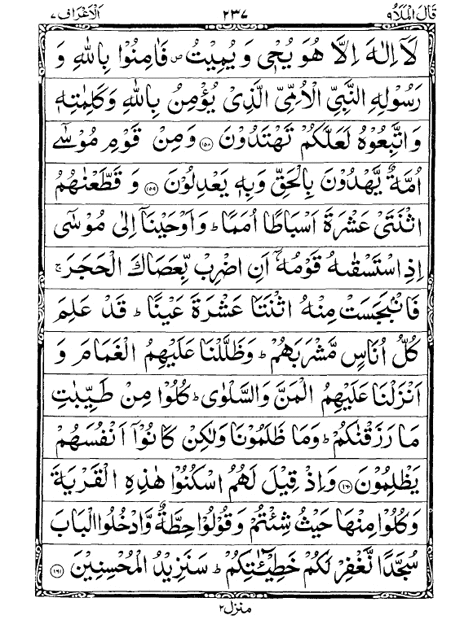 قَالَ الْمَلَاُ ٩ ٢٣٧ اَلْاَعْرَاف ٧
لَاۤ اِلٰهَ اِلَّا هُوَ يُحْىٖ وَ يُمِيْتُ ۪ فَاٰمِنُوْا بِاللّٰهِ وَ
رَسُوْلِهِ النَّبِىِّ الْاُمِّىِّ الَّذِىْ يُؤْمِنُ بِاللّٰهِ وَكَلِمٰتِهٖ
وَاتَّبِعُوْهُ لَعَلَّكُمْ تَهْتَدُوْنَ ﴿۱۵۸﴾ وَمِنْ قَوْمِ مُوْسٰۤى
اُمَّةٌ يَّهْدُوْنَ بِالْحَقِّ وَبِهٖ يَعْدِلُوْنَ ﴿۱۵۹﴾ وَ قَطَّعْنٰهُمُ
اثْنَتَىْ عَشْرَةَ اَسْبَاطًا اُمَمًا ؕ وَاَوْحَيْنَاۤ اِلٰى مُوْسٰٓى
اِذِ اسْتَسْقٰىهُ قَوْمُهٗۤ اَنِ اضْرِبْ بِّعَصَاكَ الْحَجَرَ ۚ
فَانْۢبَجَسَتْ مِنْهُ اثْنَتَا عَشْرَةَ عَيْنًا ؕ قَدْ عَلِمَ
كُلُّ اُنَاسٍ مَّشْرَبَهُمْ ؕ وَظَلَّلْنَا عَلَيْهِمُ الْغَمَامَ وَ
اَنْزَلْنَا عَلَيْهِمُ الْمَنَّ وَالسَّلْوٰى ؕ كُلُوْا مِنْ طَيِّبٰتِ
مَا رَزَقْنٰكُمْ ؕ وَمَا ظَلَمُوْنَا وَلٰكِنْ كَانُوْۤا اَنْفُسَهُمْ
يَظْلِمُوْنَ ﴿۱۶۰﴾ وَاِذْ قِيْلَ لَهُمُ اسْكُنُوْا هٰذِهِ الْقَرْيَةَ
وَكُلُوْا مِنْهَا حَيْثُ شِئْتُمْ وَقُوْلُوْا حِطَّةٌ وَّادْخُلُوا الْبَابَ
سُجَّدًا نَّغْفِرْ لَكُمْ خَطِيْٓـٰٔتِكُمْ ؕ سَنَزِيْدُ الْمُحْسِنِيْنَ ﴿۱۶۱﴾
منزل ٢